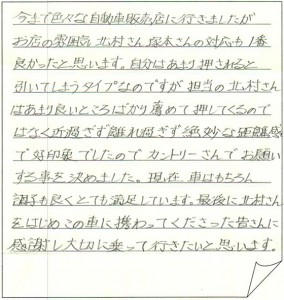 今まで色々な自動車販売店に行きましたが
お店の雰囲気 北村さん 塚本さんの対応も1番
良かったと思います。自分はあまり押されると
引いてしまうタイプなのですが担当の北村さん
はあまり良いところばかり薦めて押してくるので
はなく近過ぎず離れ過ぎず絶妙な距離感
で好印象でしたので カントリーさんでお願い
する事を決めました。現在 車はもちろん
調子も良くとても満足しています。最後に北村さん
をはじめこの車に携わってくださった皆さんに
感謝し大切に乗って行きたいと思います。